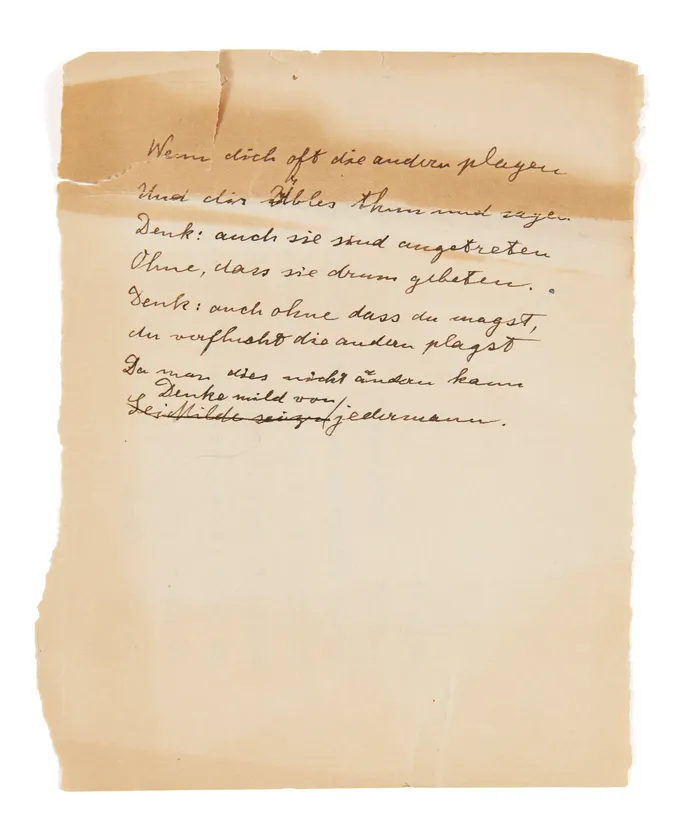 Wenn dich oft die andern plagen
Und dir Übles thun und sagen.
Denk: auch sie sind angetreten
Ohne, dass sie drum gebeten.
Denk: auch ohne dass du magst,
du verflucht die andern plagst
Da man dies nicht ändern kann
Denke mild von
Sei Milde seizu jedermann.